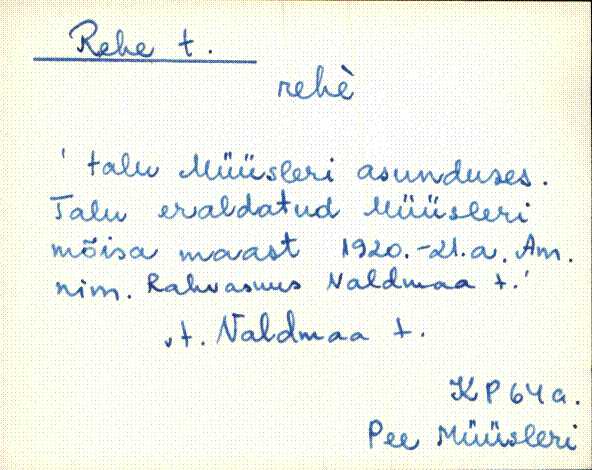 Rehe t.
rehè
' talu Müüsleri asunduses.
Talu eraldatud Müüsleri
mõisa maast 1920.-21.a. Am.
nim. Rahvasuus Naldmaa t.'
vt. Naldmaa t.
KP 64 a.
Pee Müüsleri